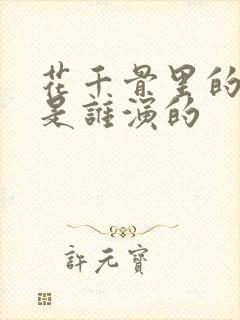 花千骨里的
是誰演的
許元寶